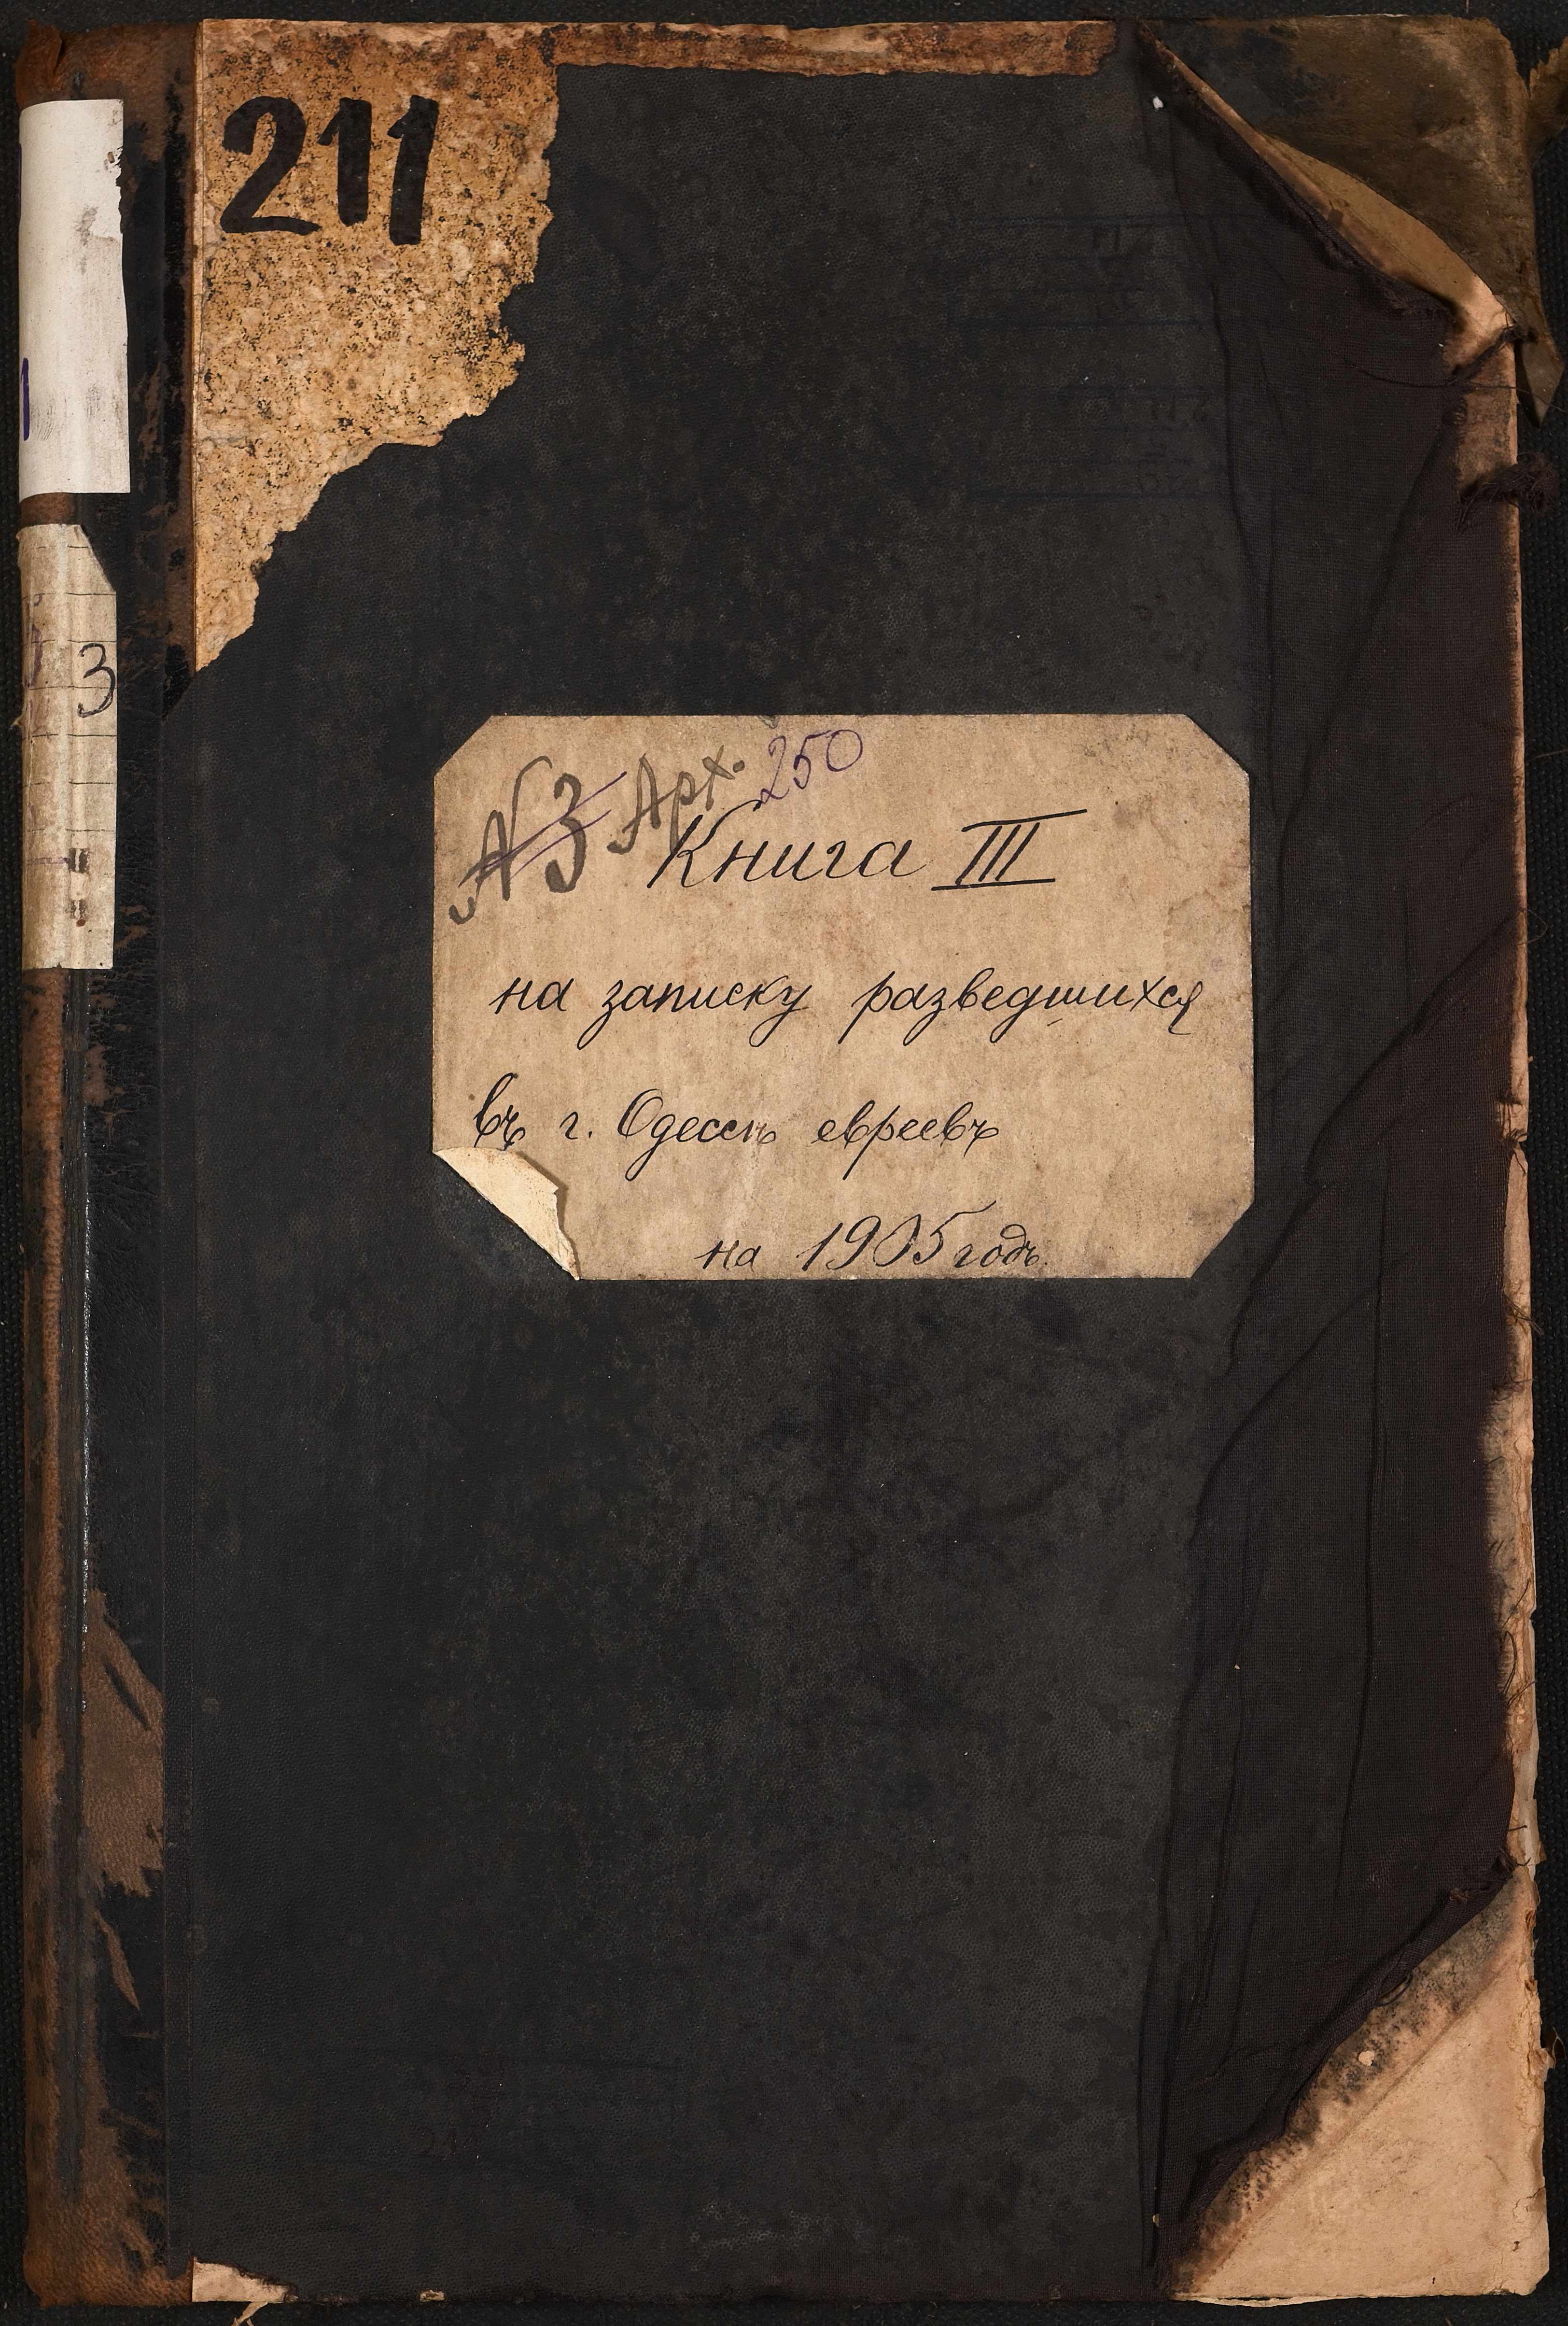 211
3
№ 3 Арх. 250
Книга III
на записку разведшихся
въ г. Одессѣ евреевъ
на 1905 годъ.